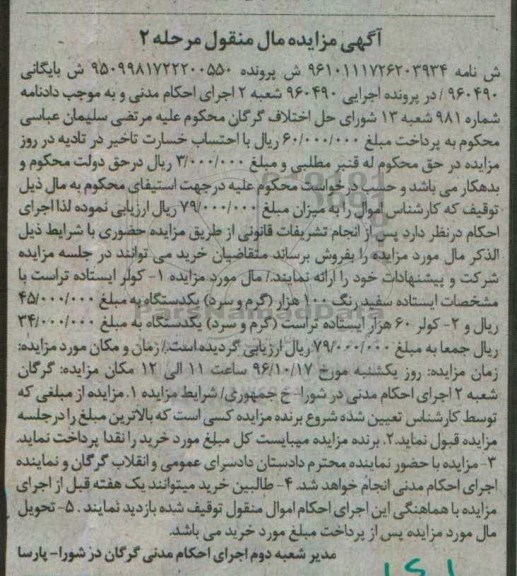 آگهی مزایده مال منقول مرحله ۲
ش نامه ۹۶۱۰۱۱۱۷۲۶۲۰۳۹۳۴ ش پرونده ۹۵۰۹۹۸۱۷۲۲۲۰۰۵۵۰ ش بایگانی
۹۶۰۴۹۰ / در پرونده اجرایی ۹۶۰۴۹۰ شعبه ۲ اجرای احکام مدنی و به موجب دادنامه
شماره ۹۸۱ شعبه ۱۳ شورای حل اختلاف گرگان محکوم علیه مرتضی سلیمان عباسی
محکوم به پرداخت مبلغ ۶۰/۰۰۰/۰۰۰ ریال با احتساب خسارت تاخیر در تادیه در روز
مزایده در حق محکوم له قنبر مطلبی و مبلغ ۳/۰۰۰/۰۰۰ ریال درحق دولت محکوم و
بدهکار می باشد و حسب درخواست محکوم علیه درجهت استیفای محکوم به مال ذیل
توقیف که کارشناس اموال را به میزان مبلغ ۷۹/۰۰۰/۰۰۰ ریال ارزیابی نموده لذا اجرای
احکام درنظر دارد پس از انجام تشریفات قانونی از طریق مزایده حضوری با شرایط ذیل
الذکر مال مورد مزایده را بفروش برساند متقاضیان خرید می توانند در جلسه مزایده
شرکت و پیشنهادات خود را ارائه نمایند./ مال مورد مزایده ۱- کولر ایستاده تراست با
مشخصات ایستاده سفید رنگ ۱۰۰ هزار (گرم و سرد) یکدستگاه به مبلغ ۴۵/۰۰۰/۰۰۰
ریال و ۲- کولر ۶۰ هزار ایستاده تراست (گرم و سرد) یکدستگاه به مبلغ ۳۴/۰۰۰/۰۰۰
ریال جمعا به مبلغ ۷۹/۰۰۰/۰۰۰ ریال ارزیابی گردیده است./ زمان و مکان مورد مزایده:
زمان مزایده: روز یکشنبه مورخ ۹۶/۱۰/۱۷ ساعت ۱۱ الی ۱۲ مکان مزایده: گرگان
شعبه ۲ اجرای احکام مدنی در شورا- خ جمهوری/ شرایط مزایده ۱. مزایده از مبلغی که
توسط کارشناس تعیین شده شروع برنده مزایده کسی است که بالاترین مبلغ را در جلسه
مزایده قبول نماید.۲. برنده مزایده میبایست کل مبلغ مورد خرید را نقدا پرداخت نماید.
۳- مزایده با حضور نماینده محترم دادستان دادسرای عمومی و انقلاب گرگان و نماینده
اجرای احکام مدنی انجام خواهد شد. ۴- طالبین خرید میتوانند یک هفته قبل از اجرای
مزایده با هماهنگی این اجرای احکام اموال منقول توقیف شده بازدید نمایند. ۵- تحویل
مال مورد مزایده پس از پرداخت مبلغ مورد خرید می باشد.
مدیر شعبه دوم اجرای احکام مدنی گرگان در شورا- پارسا
ParsNamadData